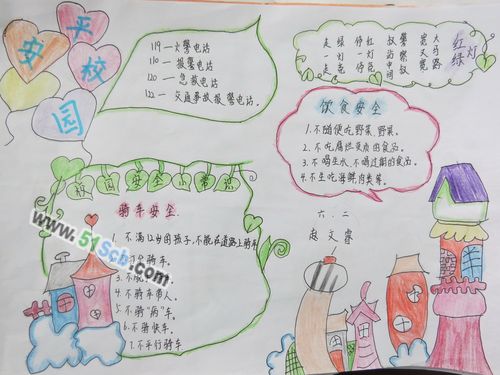 平安校园
119—火警电话
110—报警电话
120—急救电话
122—交通事故报警电话。
红绿灯
大马路
宽又宽
警察叔叔
站中间
红灯
停
绿灯
走
饮食安全
1.不随便吃野菜、野菜。
2.不吃腐烂变质的食品。
3.不喝生水、不喝过期的食品。
4.不生吃海鲜、肉类等。
六.二
校园安全小常识
骑车安全
1.不满12岁的孩子,不能在道路上骑车
4.不骑车带人。
5.不骑“病”车。
6.不骑快车。
7.不平行骑车
www.515cb.com